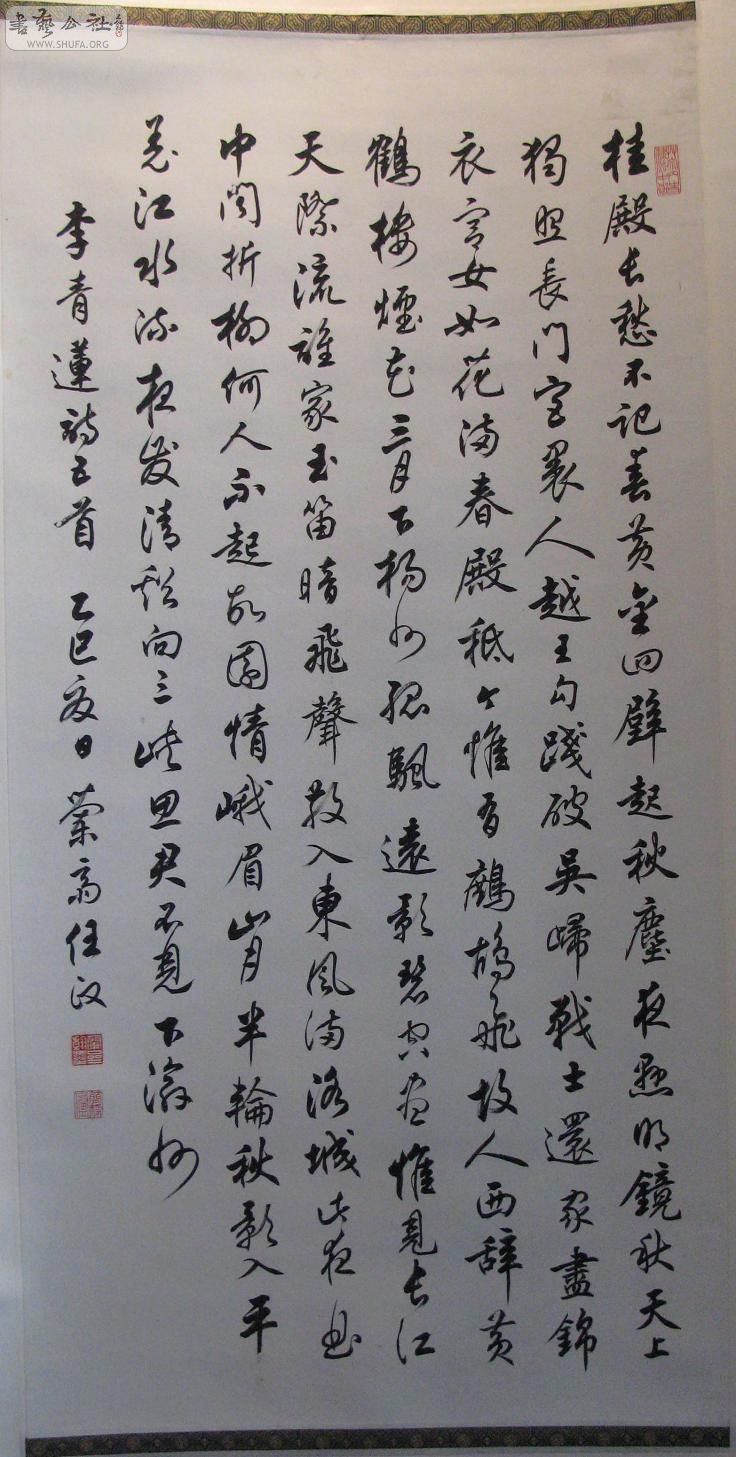 書藝公社
WWW.SHUFA.ORG
桂殿長愁不記春黃金四壁起秋塵夜懸明鏡秋天上
獨照長門宮裏人越王勾踐破吳歸戰士還家盡錦
衣宮女如花滿春殿秪今惟有鷓鴣飛故人西辭黃
鶴樓煙花三月下楊州孤颿遠影碧空盡惟見長江
天際流誰家玉笛暗飛聲散入東風滿洛城此夜曲
中聞折柳何人不起故園情峨眉山月半輪秋影入平
羌江水流夜發清谿向三峽思君不見下渝州
李青蓮詩五首 乙巳夏日 蘭齋任政